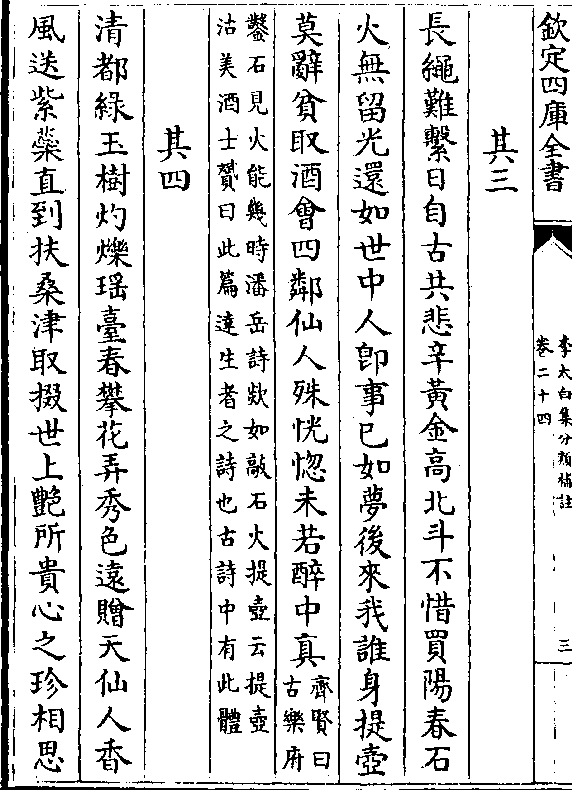 欽定四庫全書
李太白集分類補註
卷二十四
三
其三
長繩難繫日自古共悲辛黃金高北斗不惜買陽春石
火無留光還如世中人即事已如夢後來我誰身提壺
莫辭貧取酒會四鄰仙人殊恍惚未若醉中真
齊賢曰
古樂府
鑿石見火能幾時潘岳詩欻如敲石火提壺云提壺
沽美酒士贇曰此篇達生者之詩也古詩中有此體
其四
清都綠玉樹灼爍瑶臺春攀花弄秀色遠贈天仙人香
風送紫蘂直到扶桑津取掇世上艷所貴心之珍相思